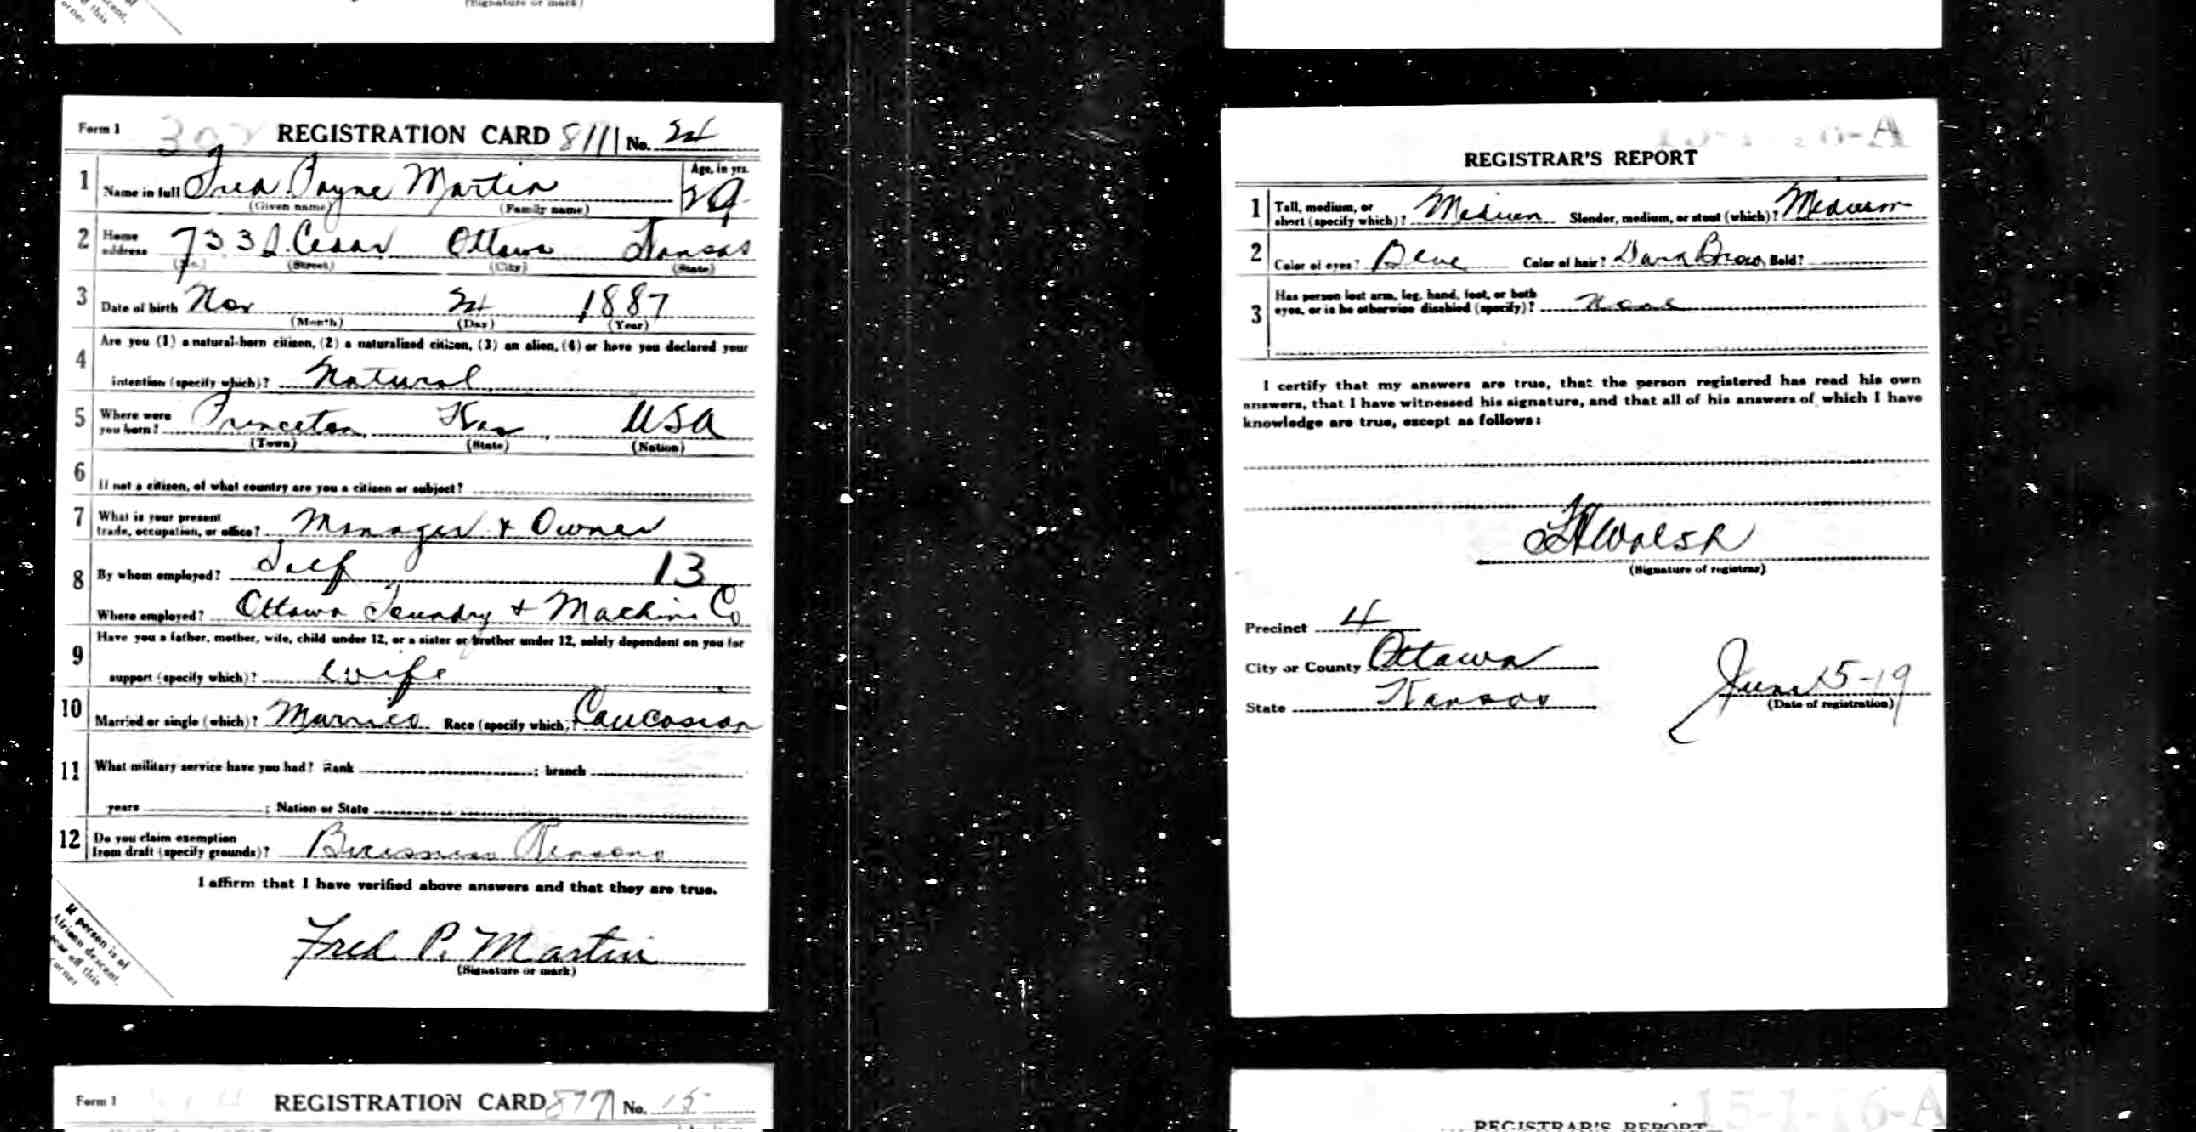 (Signature or mark)
Form 1 REGISTRATION CARD No. 24
1 Name in full Fred Payne Martin Age, in yrs. 29
(Given name) (Family name)
2 Home address 733 S. Cedar Ottawa Kansas
(No.) (Street) (City) (State)
3 Date of birth Nov 24 1887
(Month) (Day) (Year)
4 Are you (1) a natural-born citizen, (2) a naturalized citizen, (3) an alien, (4) or have you declared your
intention (specify which)? Natural
5 Where were you born? Princeton Kas USA
(Town) (State) (Nation)
6 If not a citizen, of what country are you a citizen or subject?
7 What is your present trade, occupation, or office? Manager & Owner
8 By whom employed? Self 13
Where employed? Ottawa Foundry & Machine Co
9 Have you a father, mother, wife, child under 12, or a sister or brother under 12, solely dependent on you for
support (specify which)? Wife
10 Married or single (which)? Married Race (specify which)? Caucasian
11 What military service have you had? Rank ; branch
years ; Nation or State
12 Do you claim exemption from draft (specify grounds)? Business Reasons
I affirm that I have verified above answers and that they are true.
If person is of
African descent,
off this
corner
Fred P. Martin
(Signature or mark)
Form 1 REGISTRATION CARD 877 No. 15
REGISTRAR'S REPORT
1 Tall, medium, or short (specify which)? Medium Slender, medium, or stout (which)? Medium
2 Color of eyes? Blue Color of hair? Dark Brow Bald?
3 Has person lost arm, leg, hand, foot, or both
eyes, or is he otherwise disabled (specify)? None
I certify that my answers are true, that the person registered has read his own
answers, that I have witnessed his signature, and that all of his answers of which I have
knowledge are true, except as follows:
Walsh
(Signature of registrar)
Precinct 4
City or County Ottawa
State Kansas
June 5-19
(Date of registration)
15-1-16-A
REGISTRAR'S REPORT